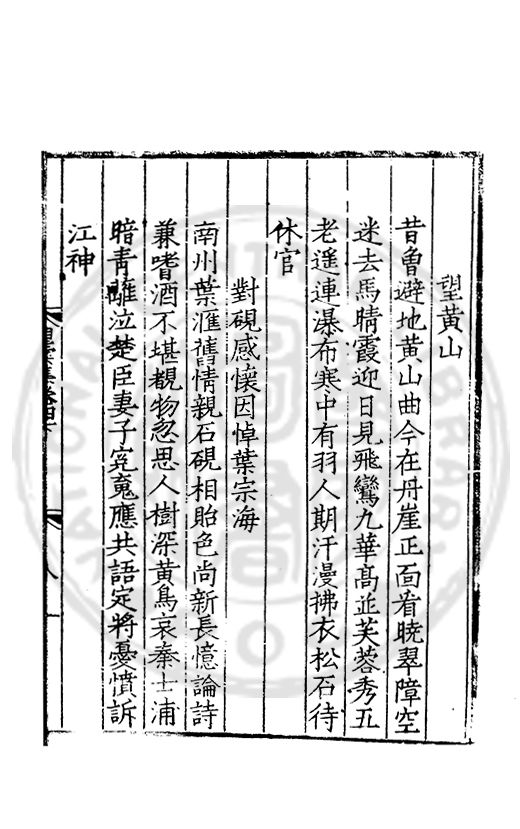 望黃山
昔曾避地黃山曲今在丹崖正面看曉翠障空
迷去馬晴霞迎日見飛鸞九華髙並芙蓉秀五
老遥連瀑布寒中有羽人期汗漫拂衣松石待
休官
對硯感懷因悼葉宗海
南州葉滙舊情親石硯相貽色尚新長憶論詩
兼嗜酒不堪覩物忽思人樹深黃鳥哀秦士浦
暗青蘺泣楚臣妻子寃䰟應共語定將憂憤訴
江神
八